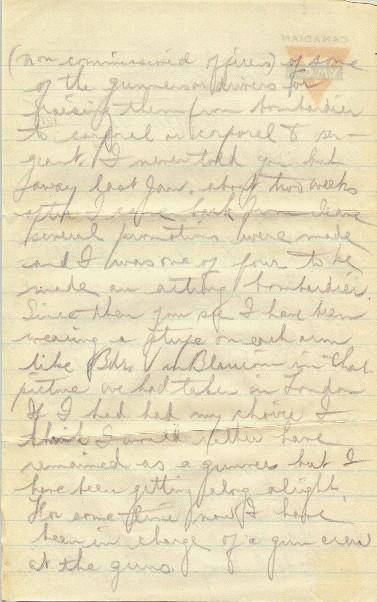 (non commissioned officers) of some
of the gunners or drivers for
raising them from bombardier
to corporal or corporal to ser-
geant. I never told you but
away last Jan. about two weeks
after I came back from leave
several promotions were made
and I was one of four to be
made an acting bombardier.
Since then you see I have been
wearing a stripe on each arm
like Bdr. in that
picture we had taken in London
If I had had my choice I
think I would rather have
remained as a gunner but I
have been getting along alright.
For some time now I have
been in charge of a gun crew
at the guns.
CANADIAN
YMCA